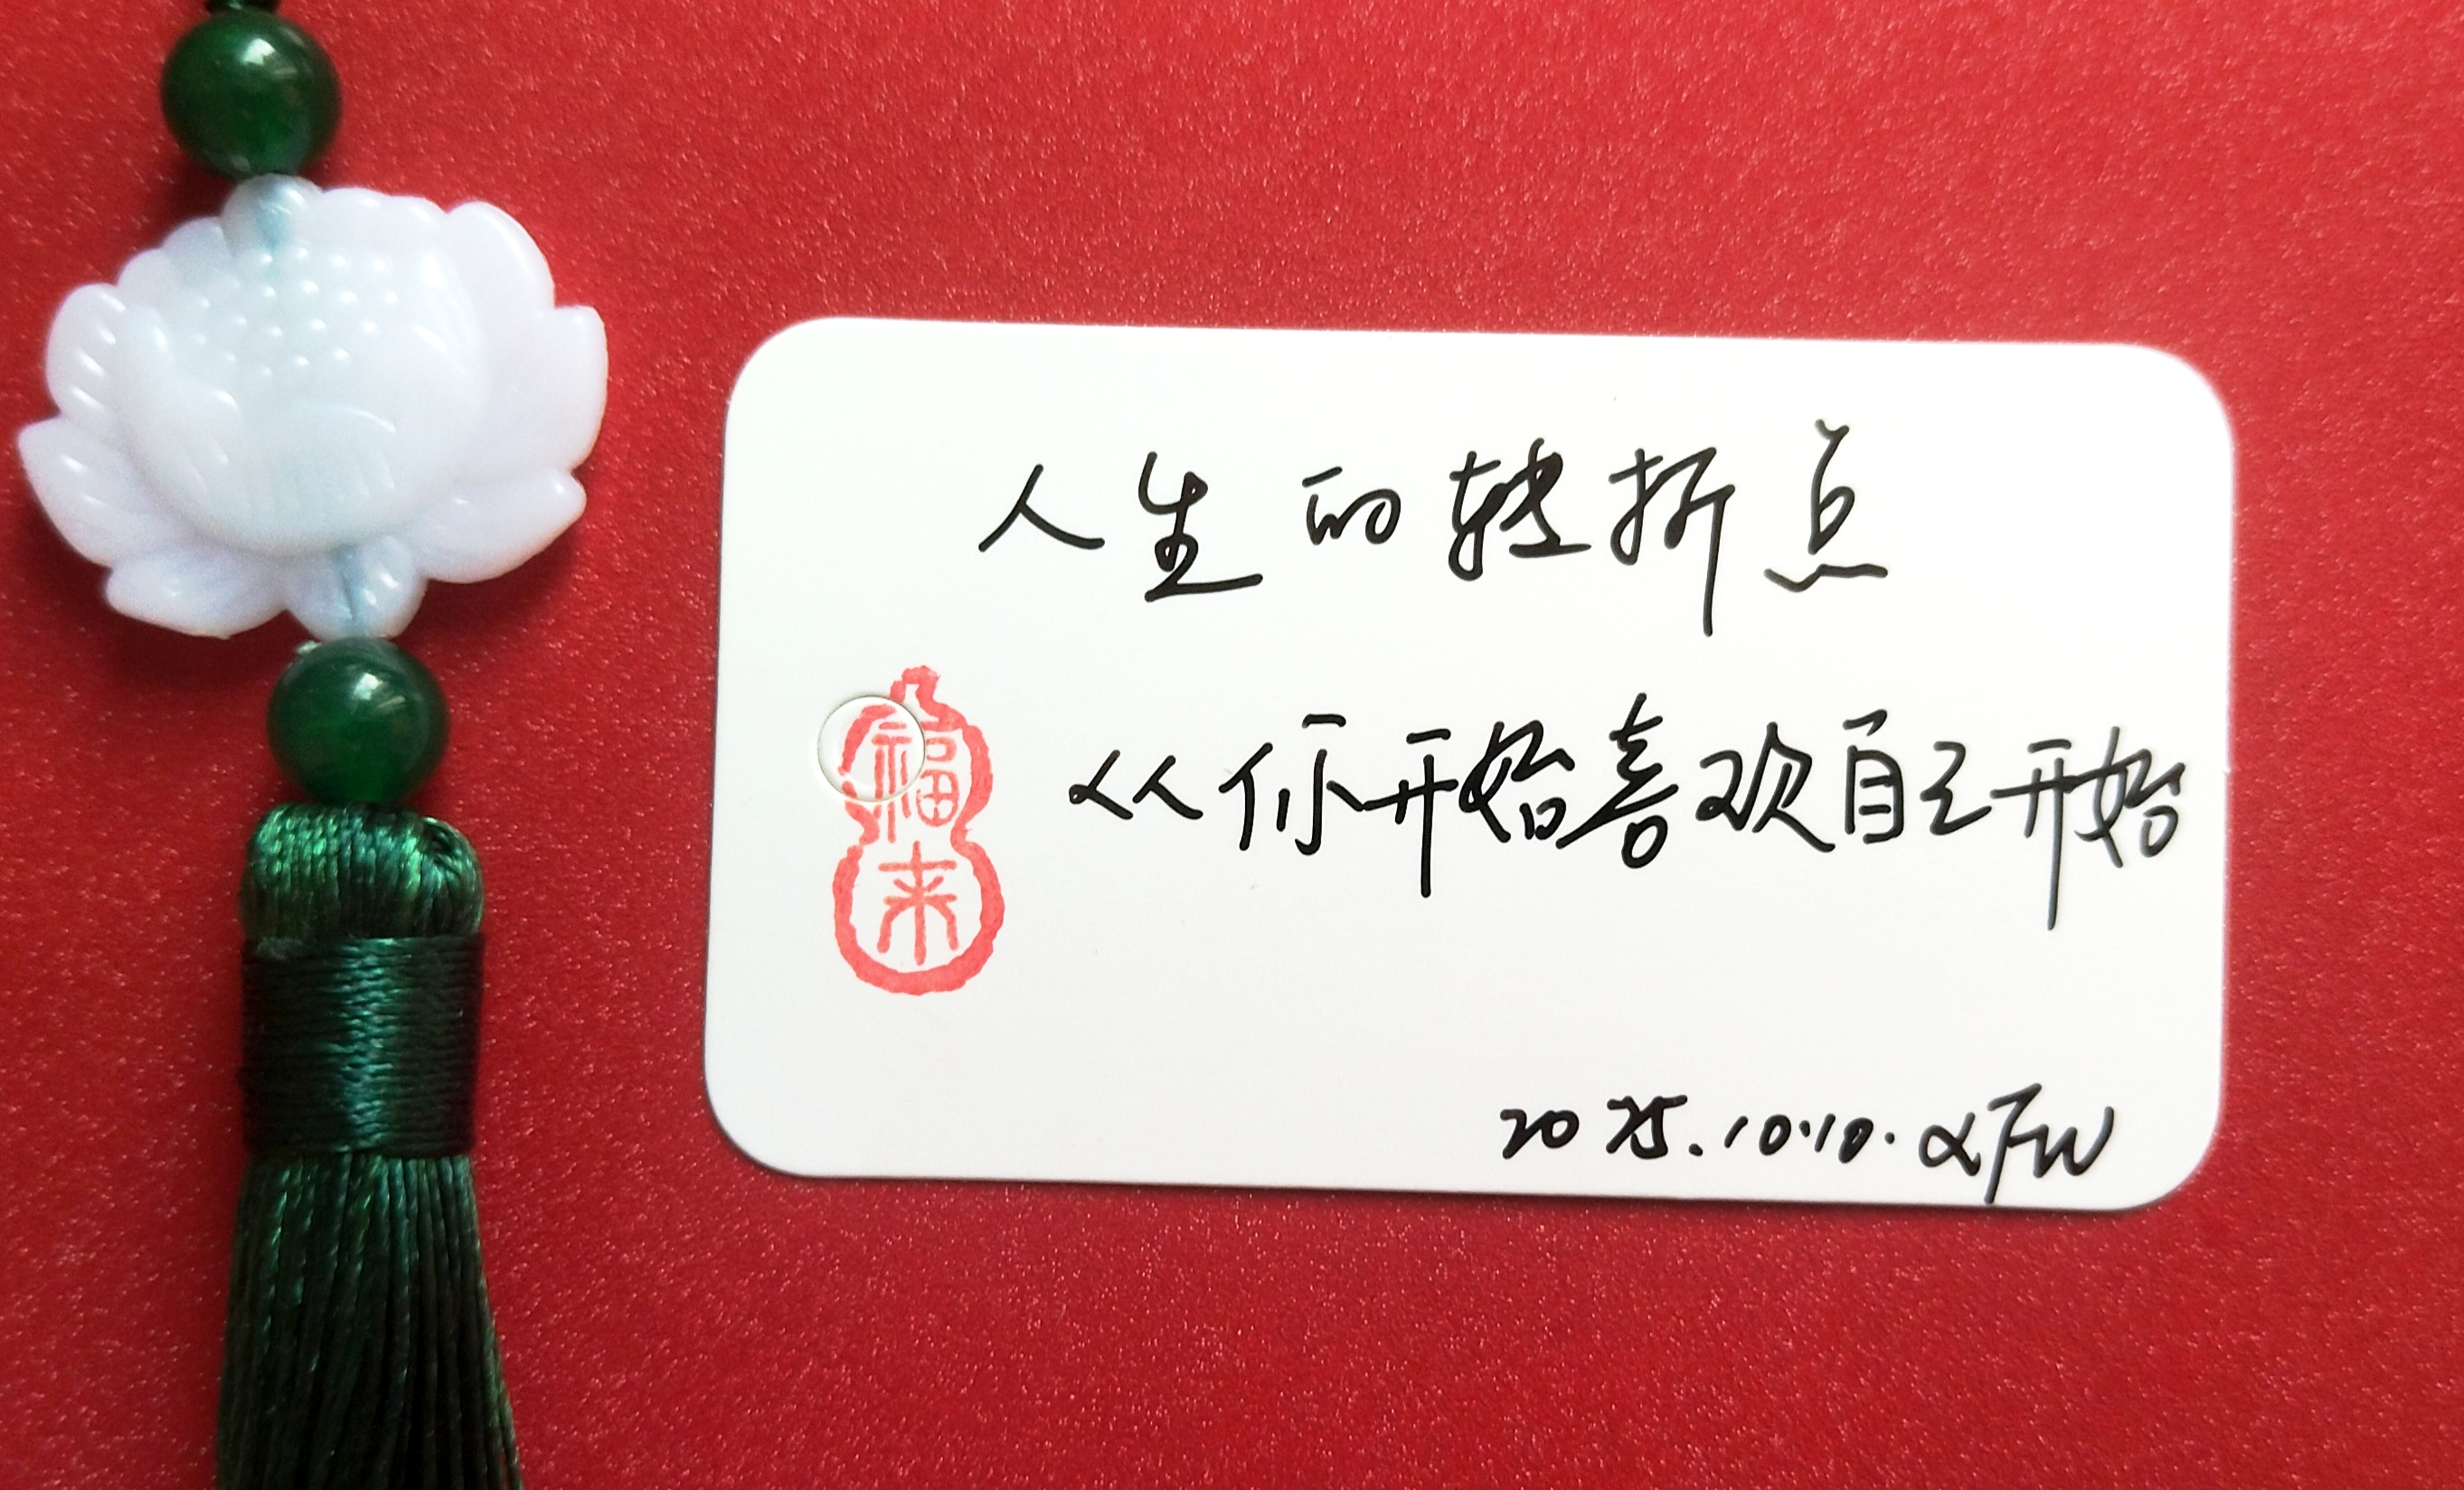 人生的转折点
福来
从你开始喜欢自己开始
2025.10.10.XFW